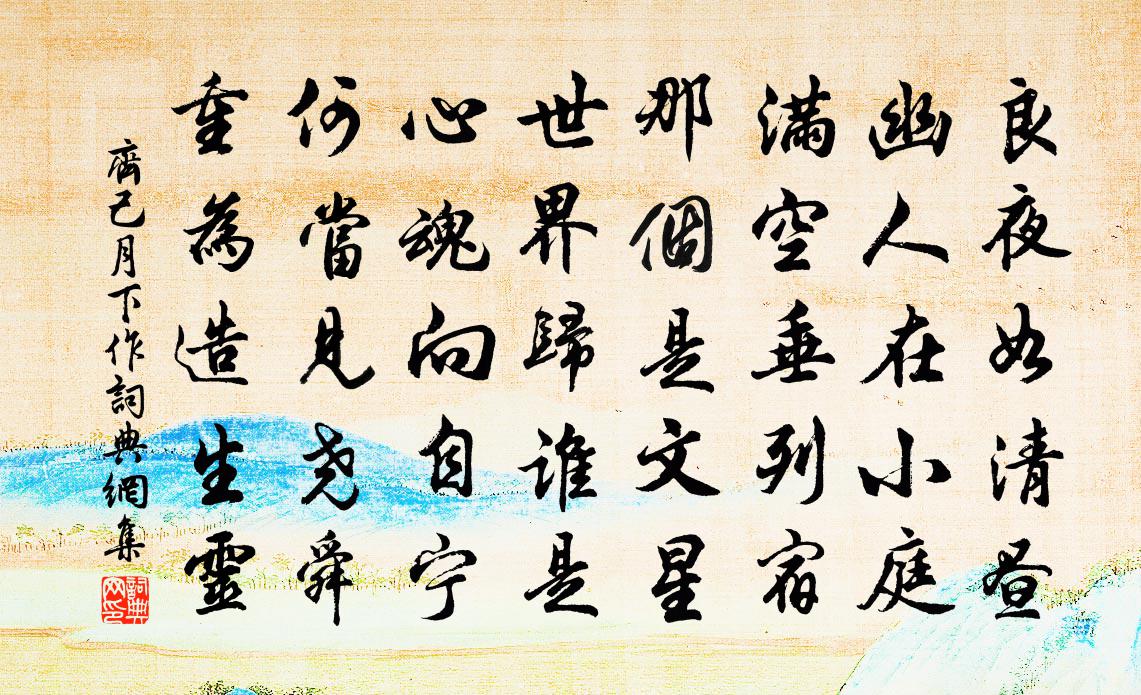 良夜如清昼
幽人在小庭
满空垂列宿
那個是文星
世界歸谁是
心魂向自宁
何當見尧舜
重為造生靈
齊己月下作詞典網集
詞典网印